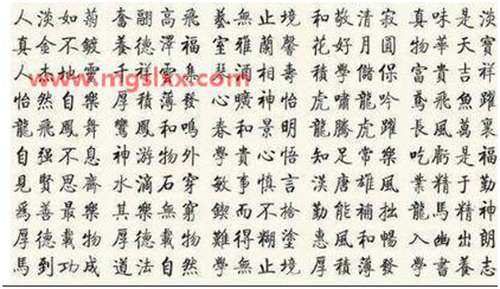 人淡如菊 奮翮高飛 藝無止境 和敬清寂 真味是淡
真金不鍍 養德澤福 室雅蘭馨 花好月圓 物華天寶
www.mgslxx.com
人 地靈 千祥 富貴吉祥
怡然自樂 厚積薄發 心曠神怡 虎嘯龍吟 鳶飛魚躍
龍飛鳳舞 鸞鳳和鳴 春和景明 龍騰虎躍 長風萬裏
自强不息 神游物外 貴心悟 知足常樂 吃虧是福
見賢思齊 水滴石穿 敏事慎言 漢唐雄風 業精于勤
為善最樂 其樂無窮 鍥而不捨 勤能補拙 龍馬精神
厚德載物 厚德載物 難得糊塗 惠風和暢 入幽出朗
馬到功成 道法自然 學無止境 厚積薄發 學書養志